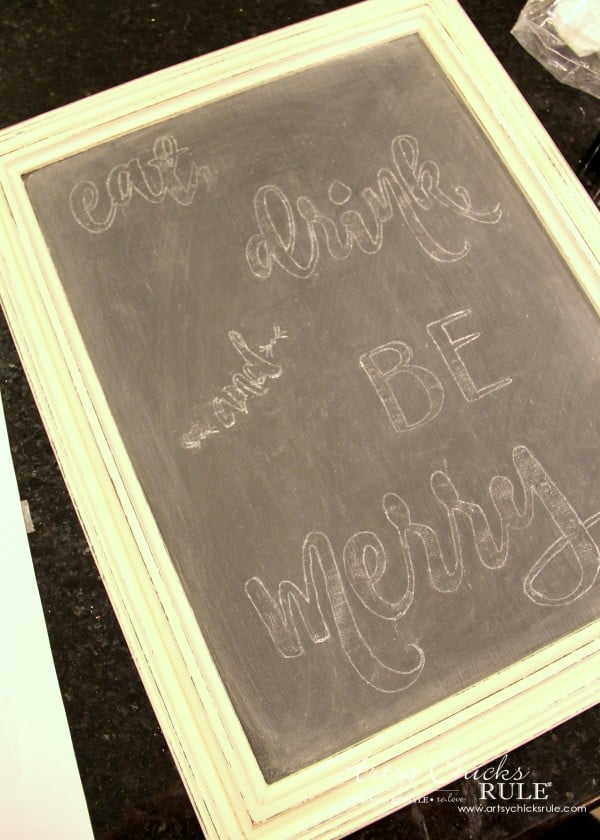 eat, drink,
and BE
merry
Artsy Chicks
RULE
www.artsychicksrule.com